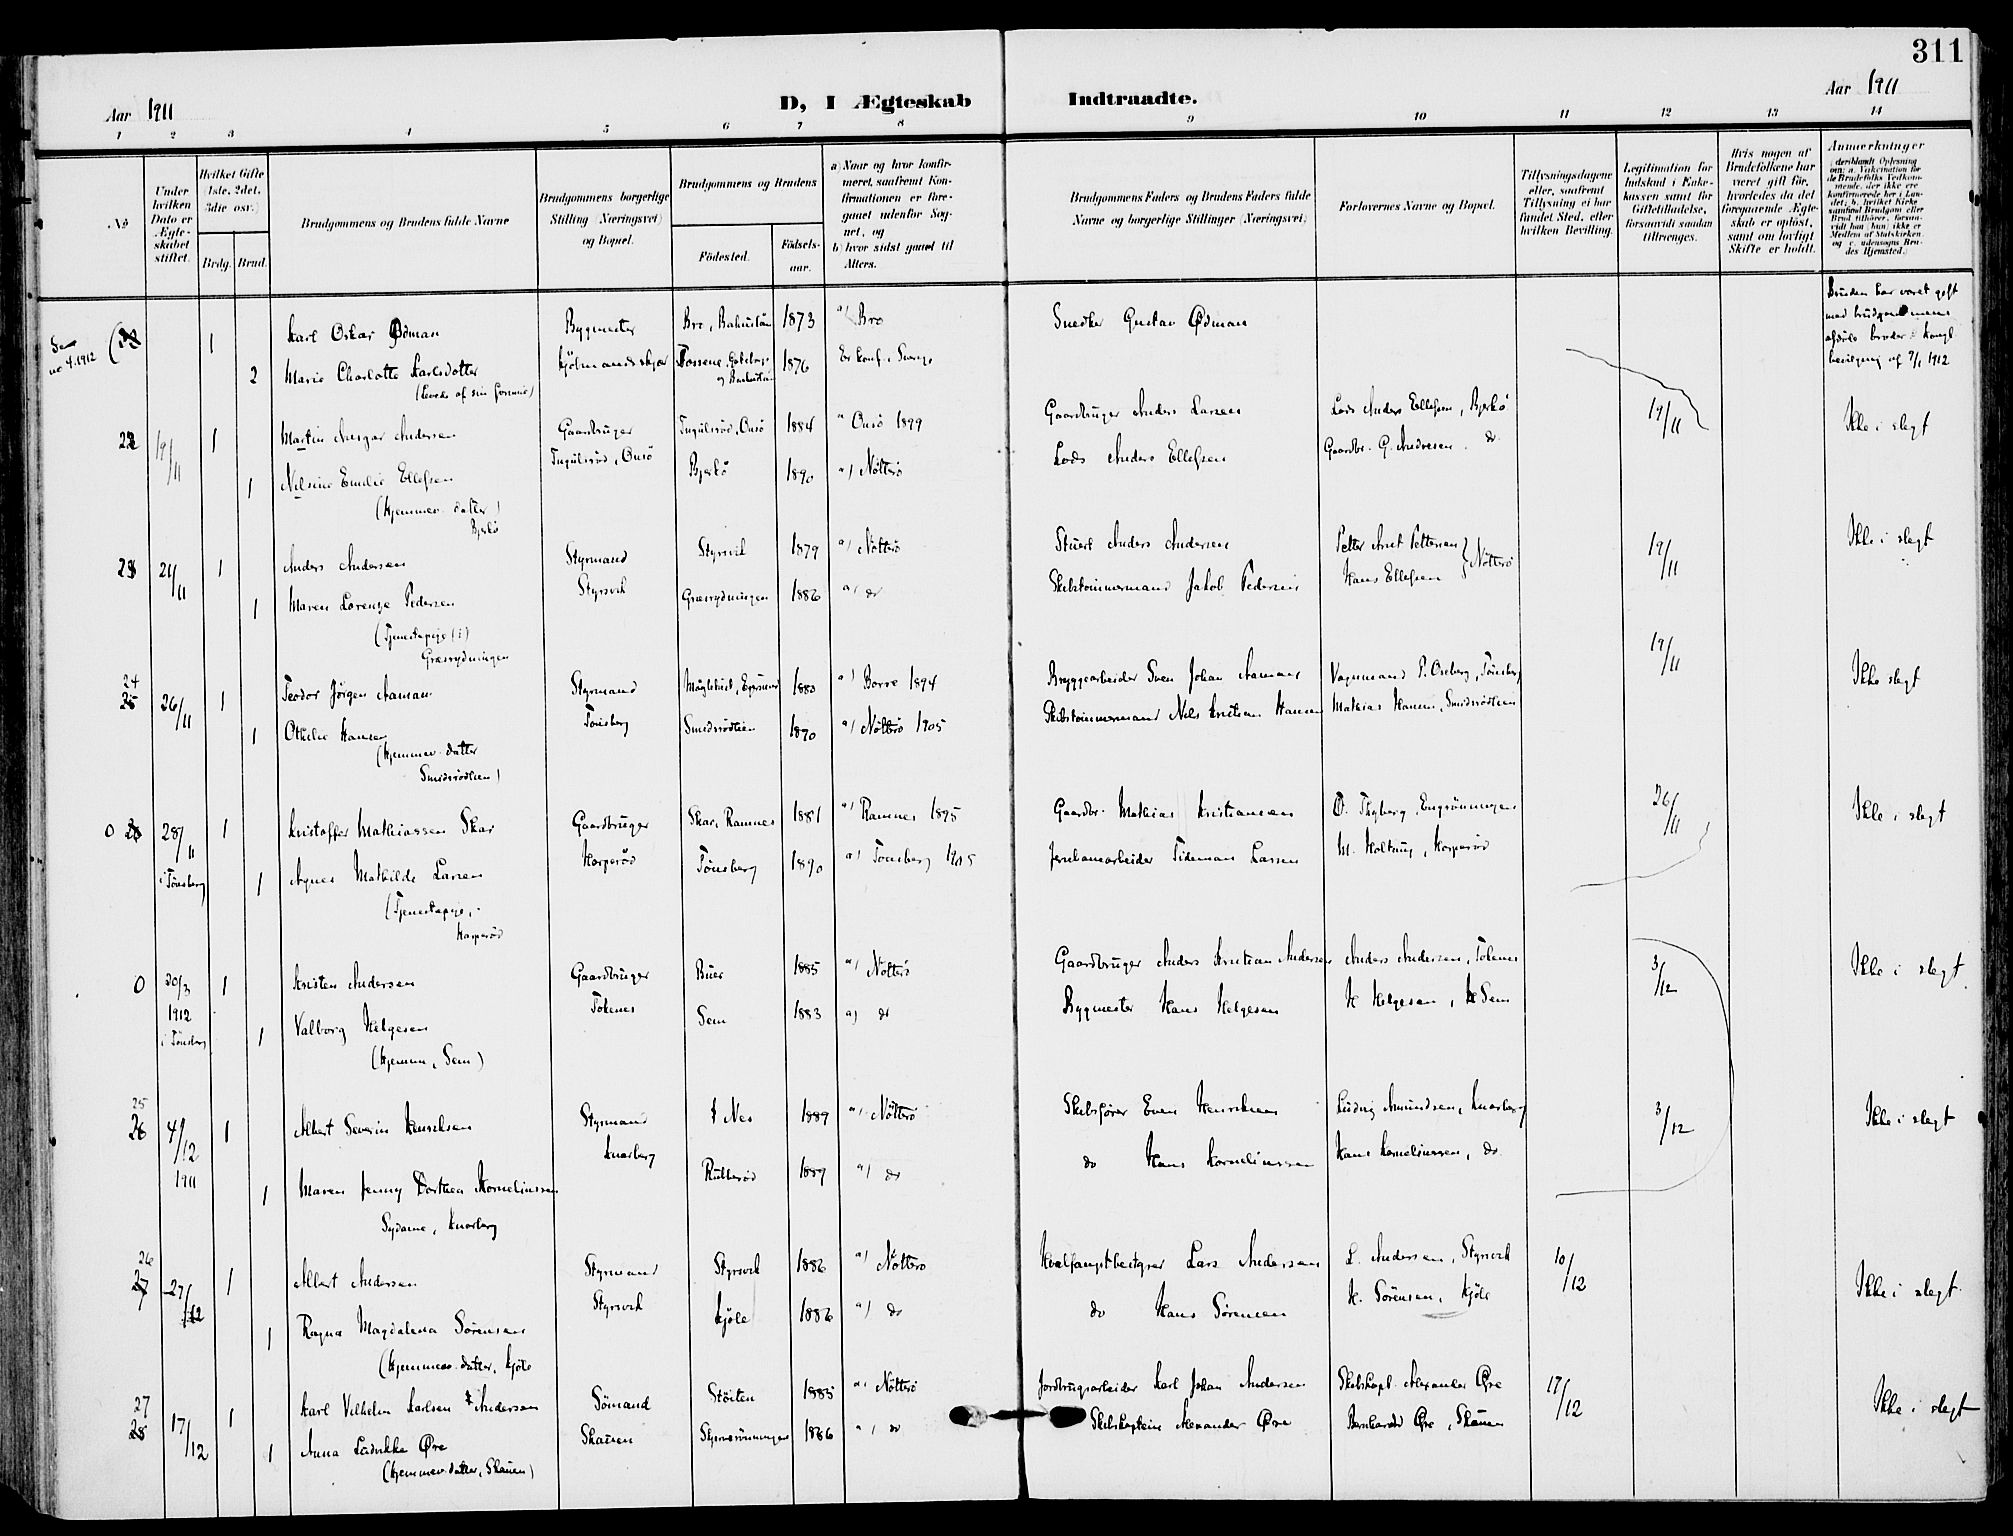 311
Aar 1911
D, I Ægteskab Indtraadte.
Aar 1911
1 2 3 4 5 6 7 8 9 10 11 12 13 14
No
Under hvilken Dato er Ægteskabet stiftet.
Hvilket Gifte (1ste, 2det, 3die osv.)
Brdg. Brud.
Brudgommens og Brudens fulde Navne
Brudgommens borgerlige Stilling (Næringsvei) og Bopæl.
Brudgommens og Brudens
Födested.
Födsels-aar.
a) Naar og hvor konfirmeret, saafremt Konfirmationen er foregaaet udenfor Sognet, og
b) hvor sidst gaaet til Alters.
Brudgommens Faders og Brudens Faders fulde Navne og borgerlige Stillinger (Næringsvei)
Forlovernes Navne og Bopæl.
Tillysningsdagene eller, saafremt Tillysning ei har fundet Sted, efter hvilken Bevilling.
Legitimation for Indskud i Enkekassen samt for Giftetilladelse, forsaavidt saadan tiltrænges.
Hvis nogen af Brudefolkene har været gift før, hvorledes da det foregaaende Ægteskab er opløst, samt om lovligt Skifte er holdt.
Anmerkninger
Se no 4. 1912
1 Karl Oskar Ødman Bygmester Bro, Bahuslän 1873 a) Bro Snedker Gustav Ødman
2 Marie Charlotte Karlsdotter Kjölmandskjær Tossene, Göteborgs og Bahuslän 1876 Er konf. i Sverige
Bruden har været gift med brudgommens afdøde broder. Kongl. bevilgning af 7/1 1912
22 19/11 1 Martin Ansgar Andersen Gaardbruger 1884 a) Onsö 1899 Gaardbruger Anders Larsen Lods Anders Ellefsen, Bjerkö 19/11 Ikke i slegt
1 Nilsine Emilie Ellefsen Bjerkö 1890 a) Nötterö Lods Anders Ellefsen Gaardbr. G. Andresen do.
(Hjemmev. datter) Bjerkö
23 21/11 1 Anders Andersen Styrmand Styrsvik 1879 a) Nötterö Stuert Anders Andersen Petter Arnt Pettersen 19/11 Ikke i slegt
1 Maren Lorenze Pedersen Styrsvik Græsrydningen 1886 a) do Skibstömmermand Jakob Pedersen Hans Ellefsen } Nötterö
(Tjenestepige (i) Græsrydningen
24
25 26/11 1 Teodor Jörgen Aaman Styrmand 1880 a) Borre 1894 Bryggearbeider Sven Johan Aaman Vognmand P. Oseberg, Tönsberg 19/11 Ikke slegt
1 Othilie Hansen Tönsberg Smidsrödveien 1890 a) Nötterö 1905 Skibstömmermand Nils Kristian Hansen Mathias Hansen, Smidsrödveien
(Hjemmev. datter Smidsrödveien)
0 28/11 i Tönsberg 1 Kristoffer Mathiassen Skar Gaardbruger Skar, Ramnes 1881 a) Ramnes 1895 Gaardbr. Mathias Kristiansen O. Thyberg, Engrönningen 26/11 Ikke i slegt
1 Agnes Mathilde Larsen Horperöd Tönsberg 1890 a) Tönsberg 1905 Jernbanearbeider Tideman Larsen M. Holtung, Horperöd
(Tjenestepige, Horperöd
0 30/3 1912 i Tönsberg 1 Kristen Andersen Gaardbruger Buer 1885 a) Nötterö Gaardbruger Anders Kristian Andersen Anders Andersen, Tokenes 3/12 Ikke i slegt
1 Valborg Helgesen Tokenes Sem 1883 a) do Bygmester Hans Helgesen H. Helgesen, Sem
(Hjemme, Sem)
25
26 4/12 1911 1 Albert Severin Henriksen Styrmand Nes 1889 a) Nötterö Skibsförer Even Henriksen Ludvig Amundsen, Knarberg 3/12 Ikke i slegt
1 Maren Jenny Dorthea Korneliussen Knarberg 1889 a) do do Hans Korneliussen Hans Korneliussen, do.
Sydame, Knarberg
26
27 27/12 1 Albert Andersen Styrmand Styrsvik 1886 a) Nötterö Hvalfangstbestyrer Lars Andersen L. Andersen, Styrsvik 10/12 Ikke i slegt
1 Ragna Magdalena Sörensen Styrsvik Kjöle 1886 a) do do Hans Sörensen H. Sörensen, Kjöle
(Hjemmev. datter, Kjöle
27
28 17/12 1 Karl Vilhelm Karlsen Andersen Sömand Stöiten 1885 a) Nötterö Jordbrugsarbeider Karl Johan Andersen Skibskapt. Alexander Øre 17/12 Ikke i slegt
1 Anna Ludvikke Øre Skauen 1886 a) do Skibskaptein Alexander Øre Bernhard Øre, Skauen
(Hjemmev. datter, Skauen)